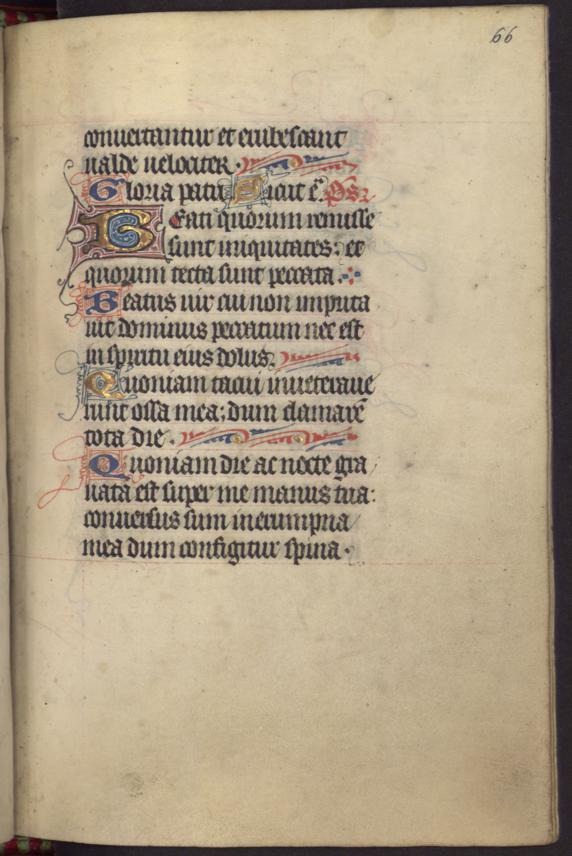 66
conuertantur et erubescant
ualde uelociter.
Gloria patri Sicut e͞. Ps
Beati quorum remisse
sunt iniquitates: et
quorum tecta sunt peccata.
Beatus uir cui non imputa
uit dominus peccatum nec est
in spiritu eius dolus.
Quoniam tacui inueteraue
runt ossa mea; dum clamarē
tota die.
Quoniam die ac nocte gra
uata est super me manus tua:
conuersus sum in erumpna
mea dum configitur spina.